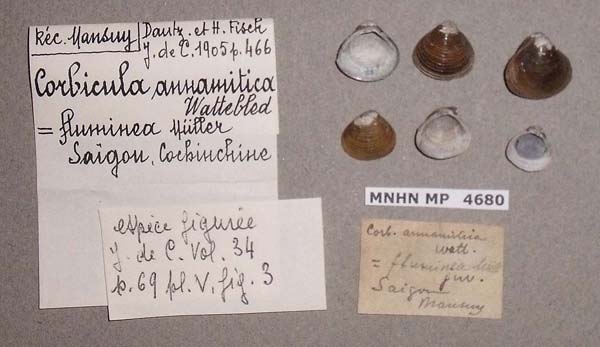 Réc. Mansuy
Dautz. et H. Fisch
J. de C. 1905 p. 466
Corbicula annamitica
Wattebled
= fluminea Müller
Saïgon, Cochinchine
espèce figurée
J. de C. Vol. 34
p. 69 pl. V, fig. 3
MNHN MP 4680
Corb. annamitica
watt.
= fluminea
Saigon
Mansuy